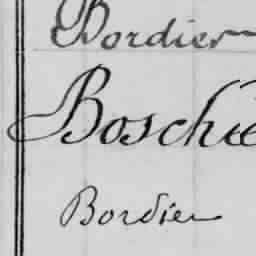 Bordier
Boschie
Bordier